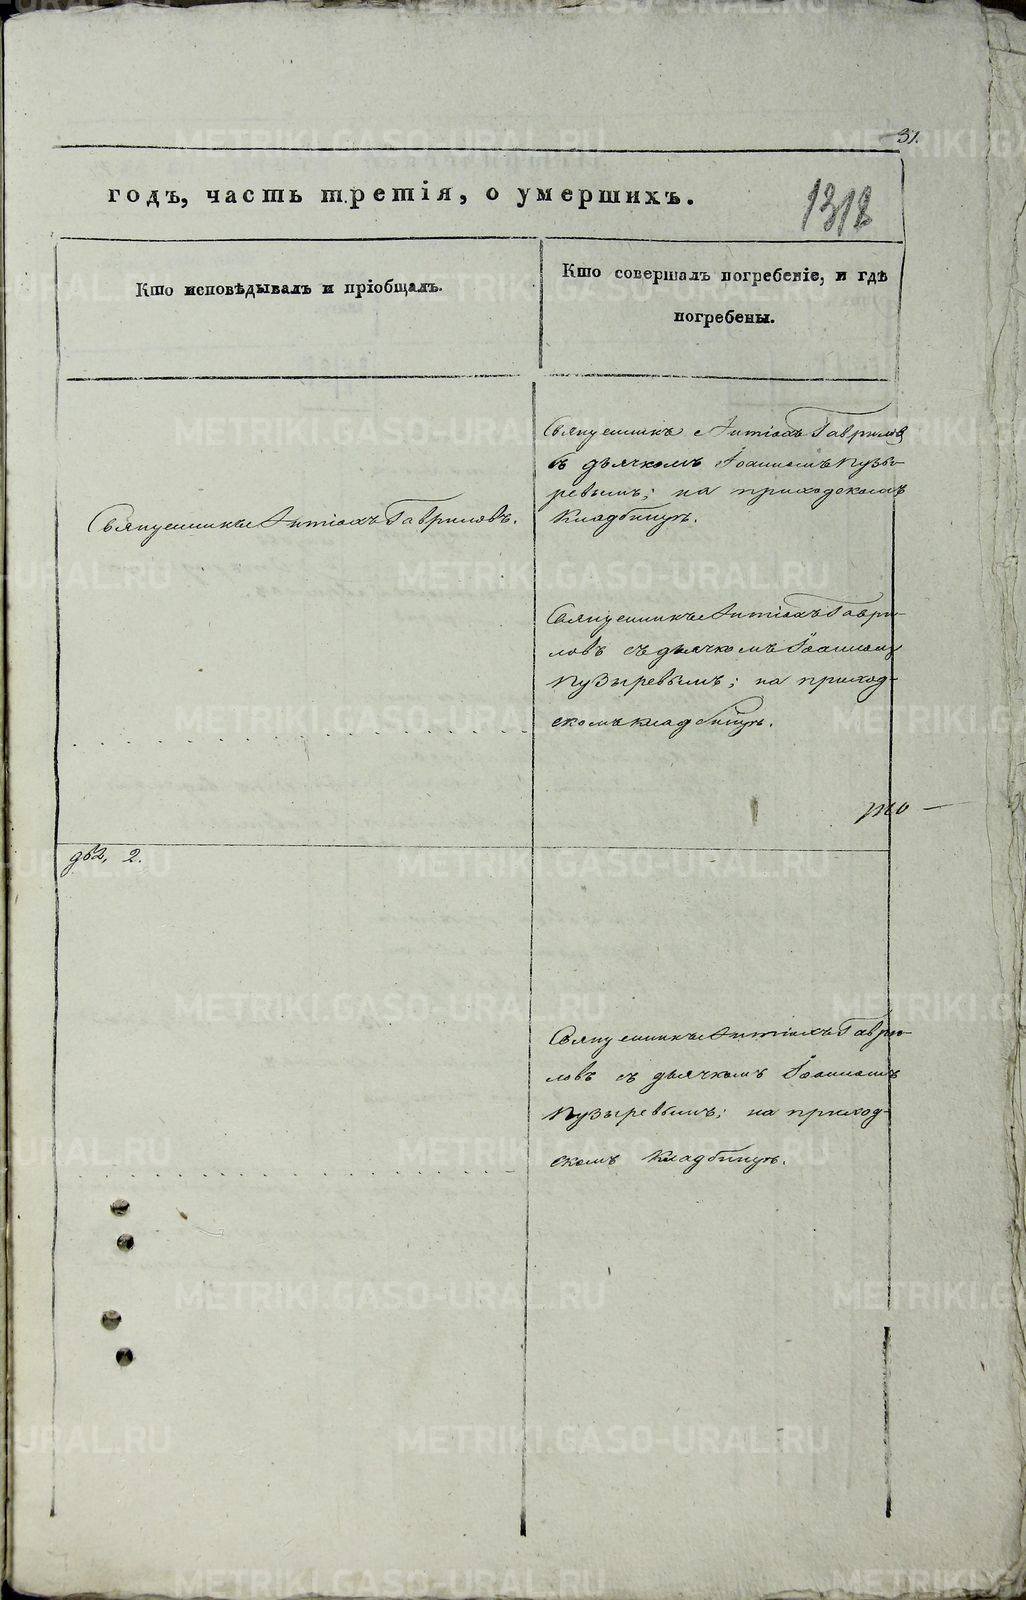 31.
годъ, часть третія, о умершихъ.
1318
Кто исповѣдывалъ и пріобщалъ.
Кто совершалъ погребеніе, и гдѣ
погребены.
Священникъ Антіохъ Гавриловъ.
Священникъ Антіохъ Гавриловъ
съ дьячкомъ Іоанномъ Пузы-
ревымъ; на приходскомъ
кладбищѣ.
Священникъ Антіохъ Гаври-
ловъ съ дьячкомъ Іоанномъ
Пузыревымъ; на приход-
скомъ кладбищѣ.
два, 2.
Священникъ Антіохъ Гаври-
ловъ съ дьячкомъ Іоанномъ
Пузыревымъ; на приход-
скомъ кладбищѣ.
METRIKI.GASO-URAL.RU